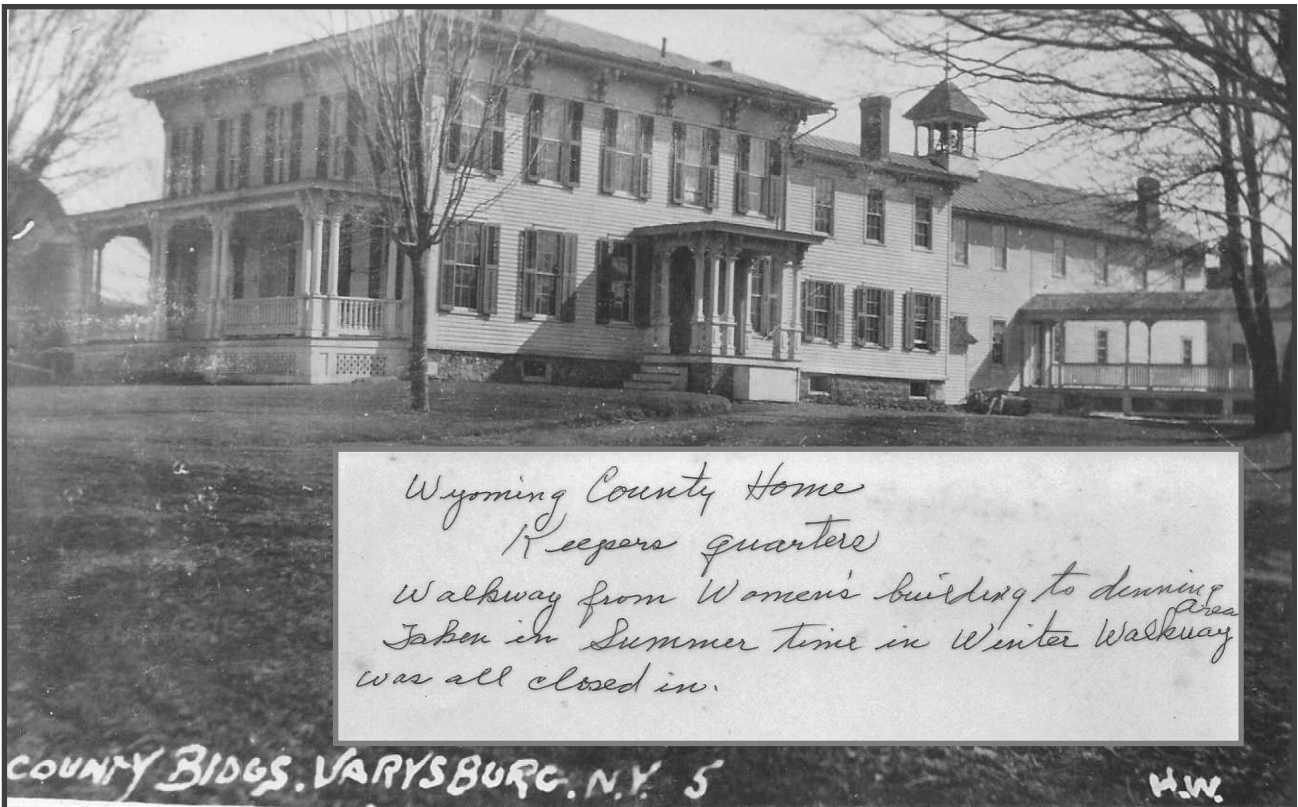 Wyoming County Home
Keepers quarters
Walkway from Women's building to dinning
area
Taken in Summer time in Winter Walkway
was all closed in.
COUNTY BLDGS. VARYSBURG. N.Y. 5
H.W.